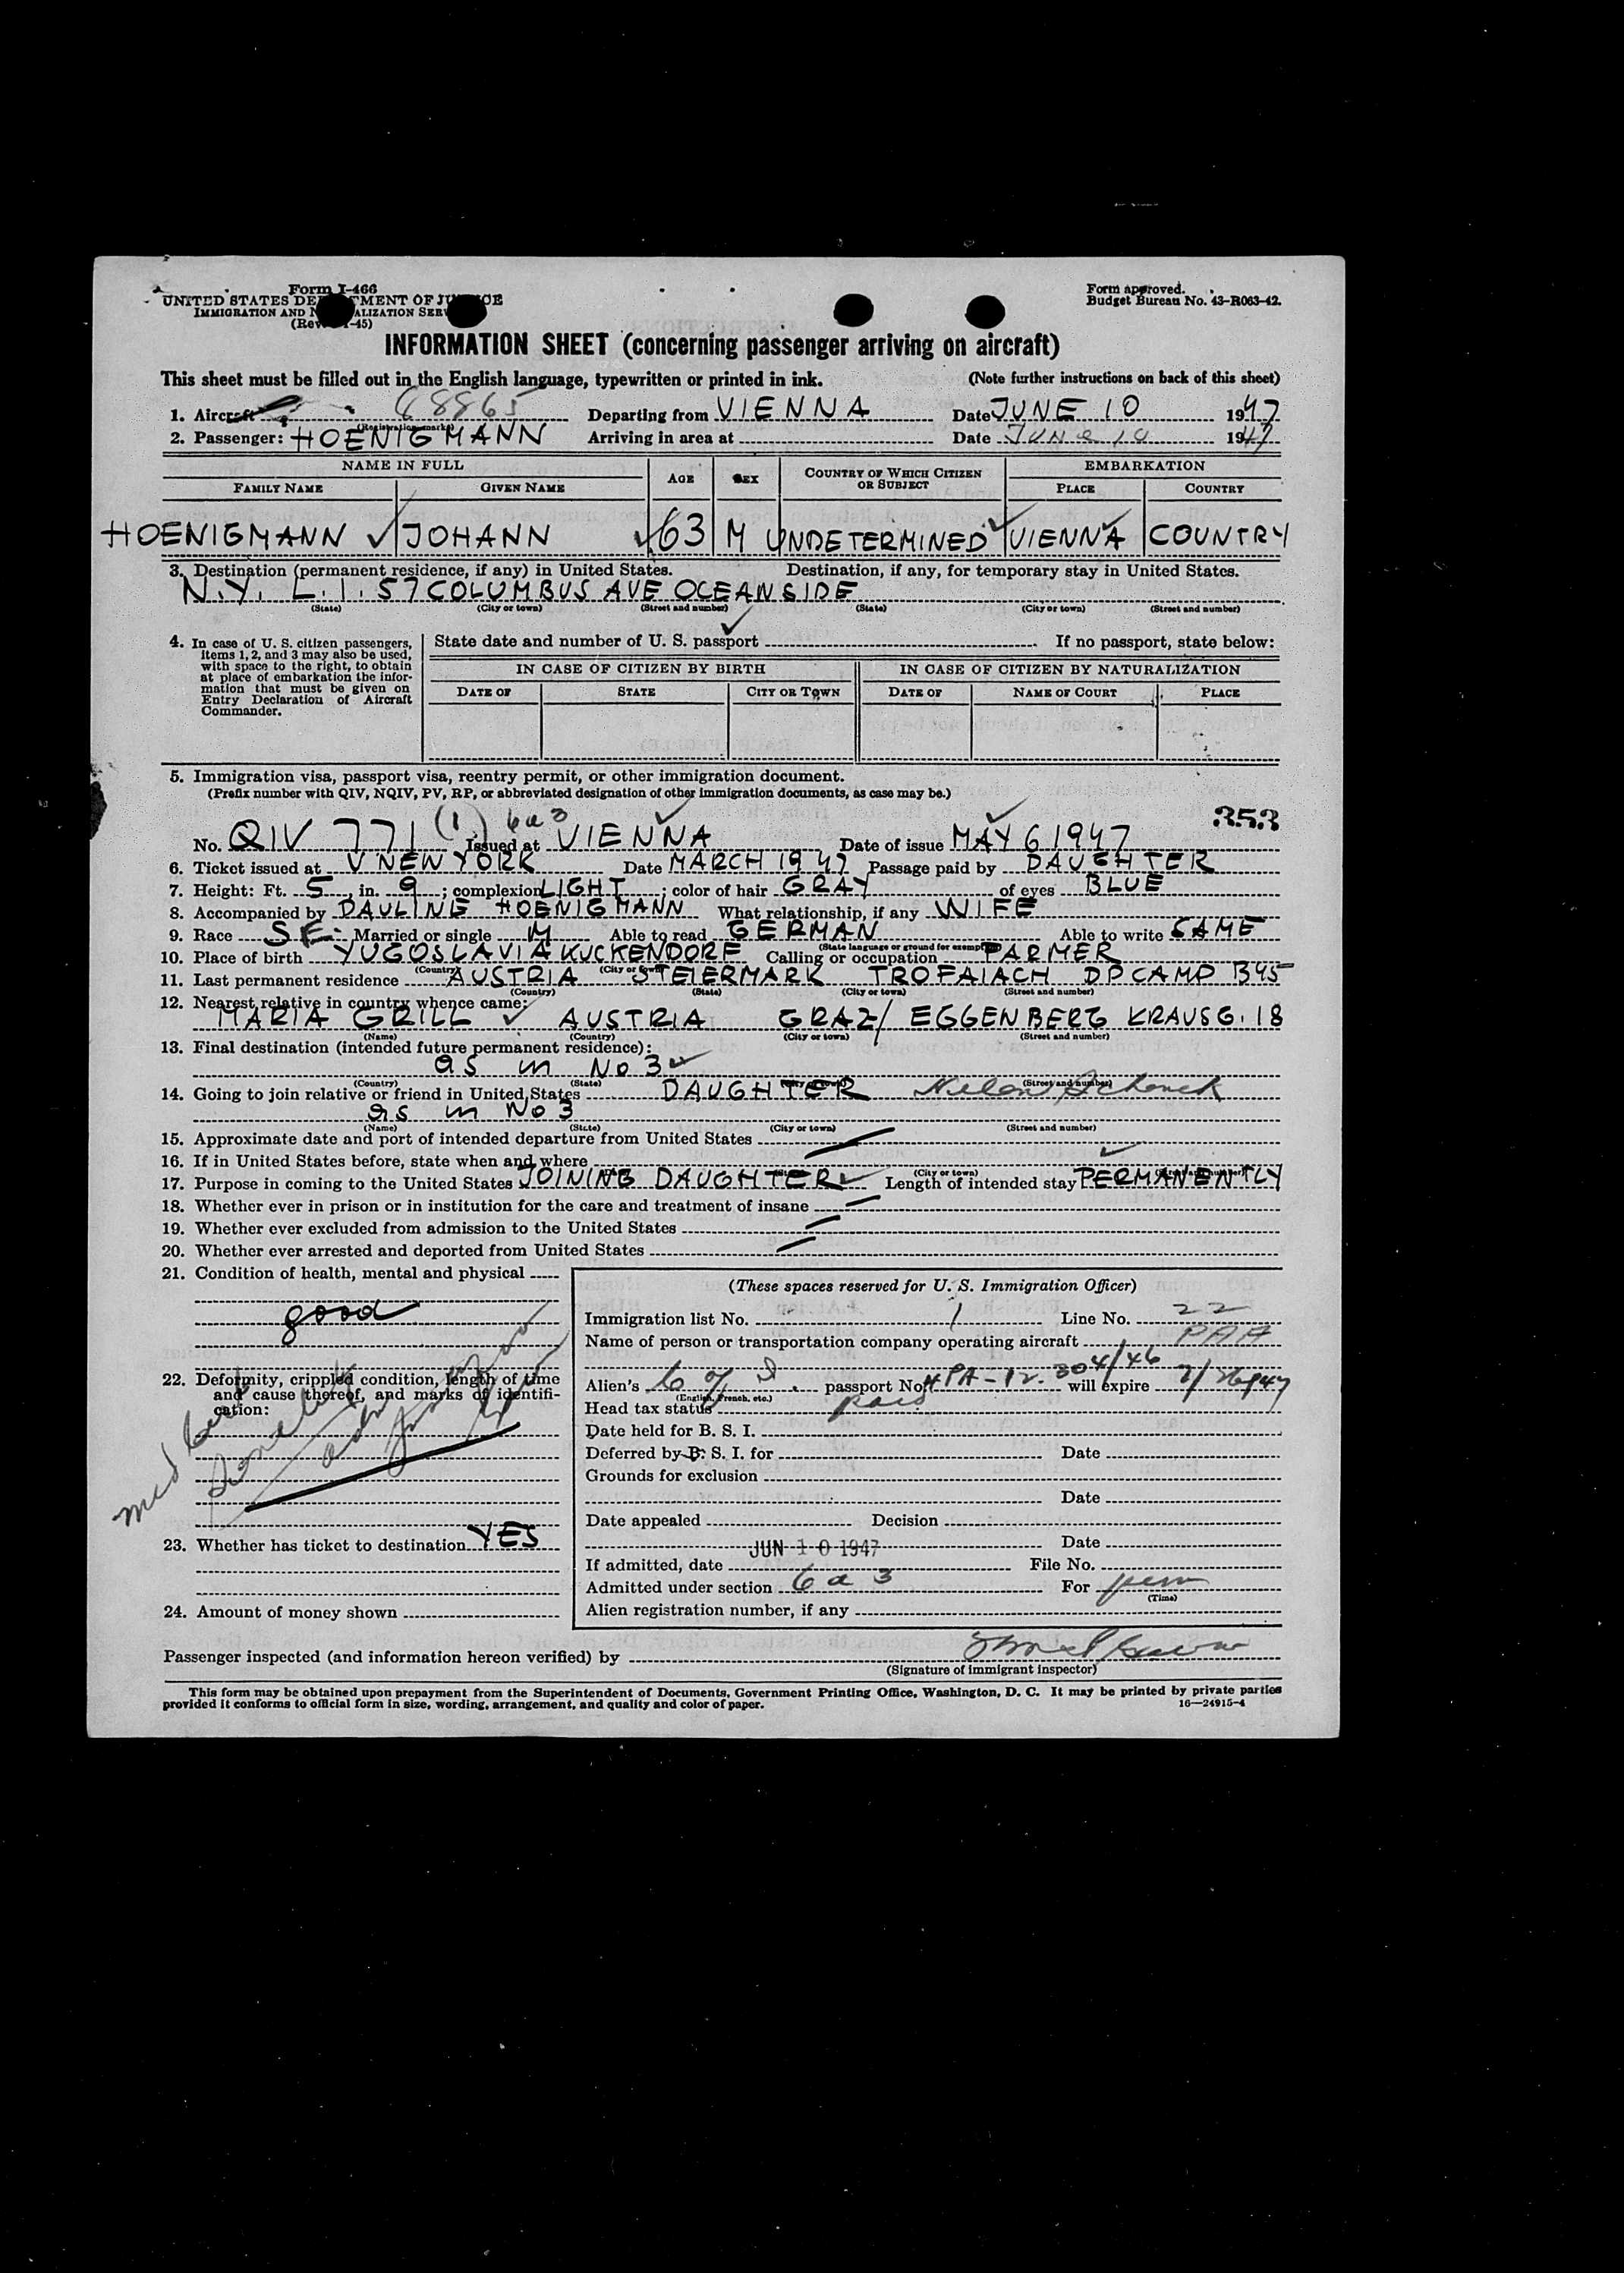 Form I-466
UNITED STATES DEPARTMENT OF JUSTICE
IMMIGRATION AND NATURALIZATION SERVICE
(Rev. -45)
Form approved.
Budget Bureau No. 43-R063-42.
INFORMATION SHEET (concerning passenger arriving on aircraft)
This sheet must be filled out in the English language, typewritten or printed in ink. (Note further instructions on back of this sheet)
1. Aircraft 88865 Departing from VIENNA Date JUNE 10 1947
(Registration marks)
2. Passenger: HOENIGMANN Arriving in area at Date June 10 1947
NAME IN FULL AGE SEX COUNTRY OF WHICH CITIZEN OR SUBJECT EMBARKATION
FAMILY NAME GIVEN NAME PLACE COUNTRY
HOENIGMANN JOHANN 63 M UNDETERMINED VIENNA COUNTRY
3. Destination (permanent residence, if any) in United States. Destination, if any, for temporary stay in United States.
N.Y. L.I. 57 COLUMBUS AVE OCEANSIDE
(State) (City or town) (Street and number) (State) (City or town) (Street and number)
4. In case of U. S. citizen passengers, items 1, 2, and 3 may also be used, with space to the right, to obtain at place of embarkation the information that must be given on Entry Declaration of Aircraft Commander.
State date and number of U. S. passport If no passport, state below:
IN CASE OF CITIZEN BY BIRTH IN CASE OF CITIZEN BY NATURALIZATION
DATE OF STATE CITY OR TOWN DATE OF NAME OF COURT PLACE
5. Immigration visa, passport visa, reentry permit, or other immigration document.
(Prefix number with QIV, NQIV, PV, RP, or abbreviated designation of other immigration documents, as case may be.)
353
No. QIV 771 (1) 6a3 Issued at VIENNA Date of issue MAY 6 1947
6. Ticket issued at NEW YORK Date MARCH 1947 Passage paid by DAUGHTER
7. Height: Ft. 5, in. 9; complexion LIGHT; color of hair GRAY of eyes BLUE
8. Accompanied by PAULINE HOENIGMANN What relationship, if any WIFE
9. Race Married or single M Able to read GERMAN Able to write SAME
(State language or ground for exemption)
10. Place of birth YUGOSLAVIA KUCKENDORF Calling or occupation FARMER
(Country) (City or town)
11. Last permanent residence AUSTRIA STEIERMARK TROFAIACH DPCAMP B45
(Country) (State) (City or town) (Street and number)
12. Nearest relative in country whence came:
MARIA GRILL AUSTRIA GRAZ/ EGGENBERG KRAUSG. 18
(Name) (Country) (City or town) (Street and number)
13. Final destination (intended future permanent residence):
as in No 3
(Country) (State) (City or town) (Street and number)
14. Going to join relative or friend in United States DAUGHTER Helen Schenck
as in No 3
(Name) (State) (City or town) (Street and number)
15. Approximate date and port of intended departure from United States
16. If in United States before, state when and where
(City or town) (Street and number)
17. Purpose in coming to the United States JOINING DAUGHTER Length of intended stay PERMANENTLY
18. Whether ever in prison or in institution for the care and treatment of insane
19. Whether ever excluded from admission to the United States
20. Whether ever arrested and deported from United States
21. Condition of health, mental and physical
good
22. Deformity, crippled condition, length of time and cause thereof, and marks of identification:
med
23. Whether has ticket to destination YES
24. Amount of money shown
(These spaces reserved for U. S. Immigration Officer)
Immigration list No. 1 Line No. 22
Name of person or transportation company operating aircraft PAA
Alien's C of I passport No. PA-12.304/46 will expire 7/26/47
(English, French, etc.)
Head tax status paid
Date held for B. S. I.
Deferred by B. S. I. for Date
Grounds for exclusion
Date
Date appealed Decision
JUN 10 1947 Date
If admitted, date File No.
Admitted under section 6 a 3 For perm
(Time)
Alien registration number, if any
Passenger inspected (and information hereon verified) by
(Signature of immigrant inspector)
This form may be obtained upon prepayment from the Superintendent of Documents, Government Printing Office, Washington, D. C. It may be printed by private parties
provided it conforms to official form in size, wording, arrangement, and quality and color of paper. 16—24915-4